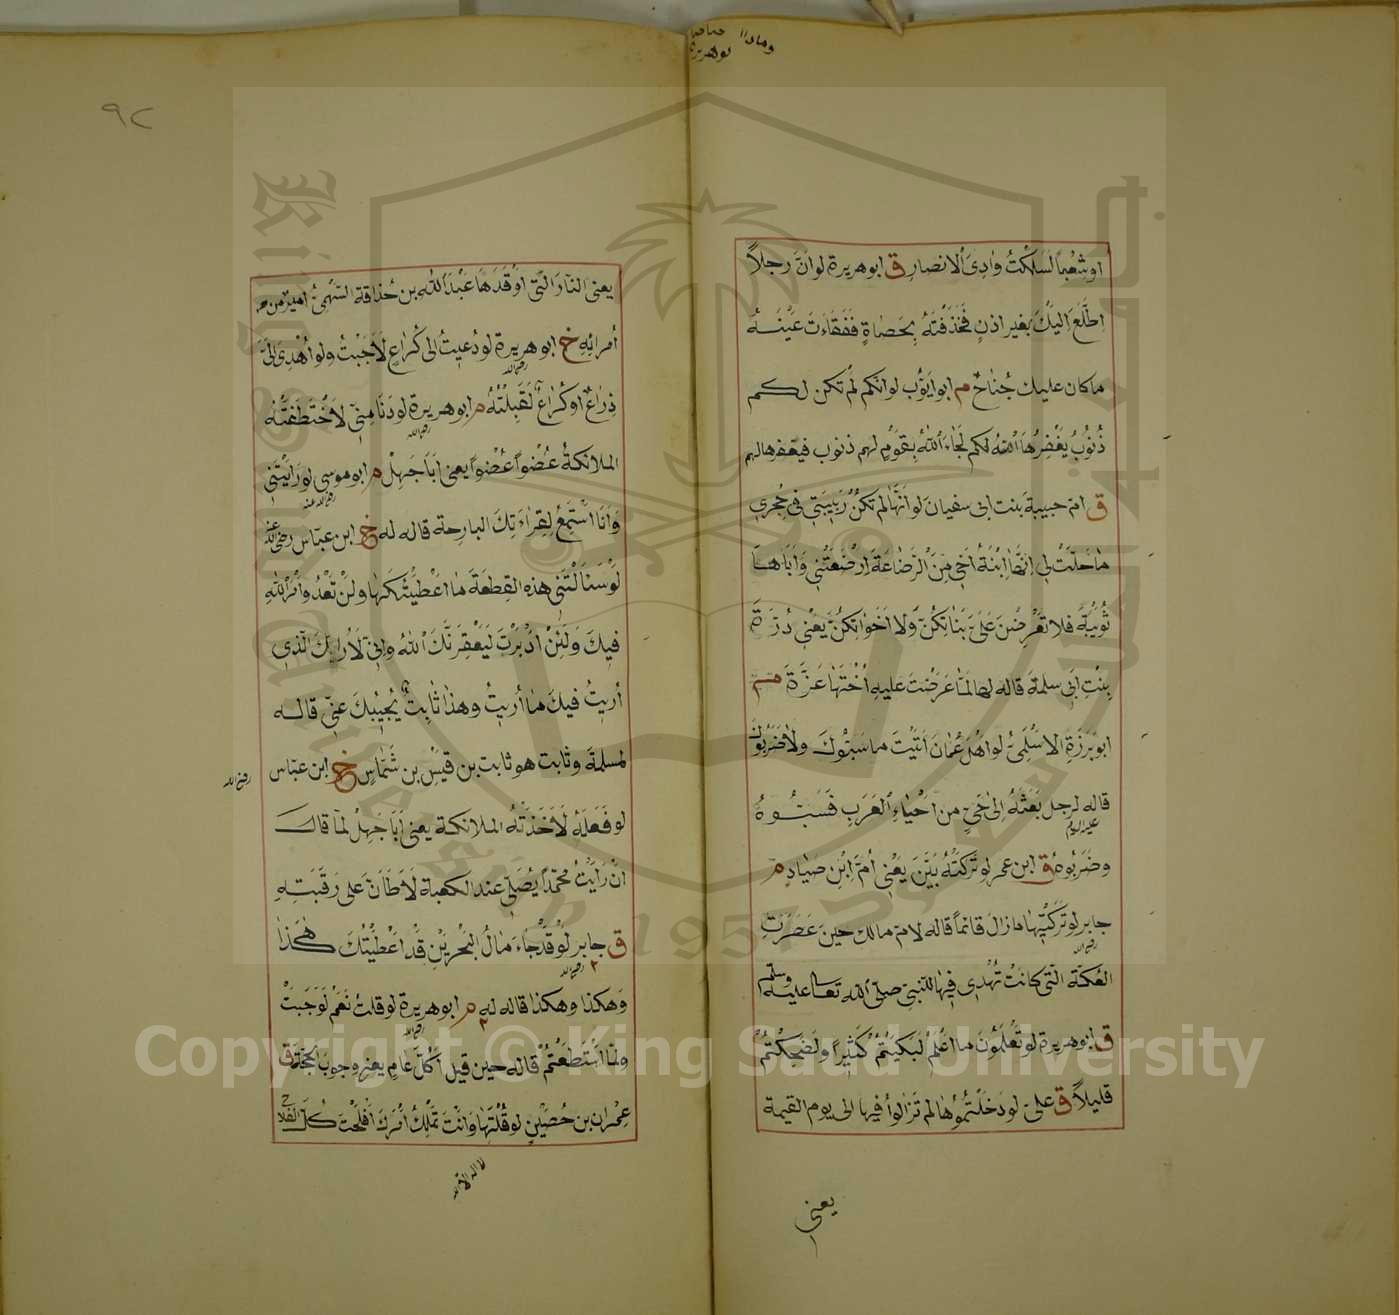 اوشعْباً لسَلكْتُ وادِىَ ألانصارِ ق ابوهريرة لوانَّ رجلاً
اطَّلعَ اليْكَ بغيراذنٍ فخذَفْتَهُ بِحَصاةٍ ففَقَاءَتَ عَيْنَهُ
ماكان عليك جُناحٌ م ابوايّوُب لوانكم لمْ تكن لكم
ذُنُوبُ يَغْفِرُهَا ٱللهُ لكم لجَاءَ ٱللهُ بقَومٍ لهم ذنوب فيغفرهالهم
ق امّ حبيبة بنت ابى سفيان لوانّهَا لم تكنْ رَبِيبَتى فى حُجرى
مَا حَلّتْ لى اِنّهَا اِبْنَةُ أخى مِنَ ٱلرَّضاعَةِ اَرْضَعَتْنِى وَاَباهَا
ثُوَيْبَةُ فلاتعْرِضْنَ عَلىَّ بنَاتِكُنَّ وَلااَخَوَاتكُنَّ يَعْنى دُرَّةَ
بِنْتِ ابى سلمةَ قاله لها لمّا عَرَضْتَ عليهِ أختَها عَزَّةَ م
ابوبَرزَةِ الاسْلمِىُّ لواهْلَ عُمَانَ أتيْتَ ماسَبُّوكَ ولاضَرَبُوكَ
قاله لرجلٍ بَعَثَهُ اِلىٰ حَىٍّ من اَحيْاءِ ٱلعَرَبِ فَسَبُّوهُ
عليه السلام
وضَرَبُوهُ ق ابن عمر لوتَرَكَتْهُ بَيَّنَ يَعْنِى أُمَّ ابْنِ صَيّادٍ م
جابر لوتَرَكْتِيهَا مازالَ قائماً قاله لامّ مالك حينَ عَصَرَتِ
رضى الله
العُكّةَ الّتى كانتْ تُهْدِى فيهَا للنبىّ صلى ٱلله تعالى عليه وسلم
ق ابوهريرة لوتَعْلَمُونَ مااَعْلَمُ لَبَكيْتُمْ كَثيِراً ولَضَحِكْتُمْ
قليلاً ق علىّ لودخَلْتُمُوهَا لم تزالوا فيها الى يوم القيمة
يعنى
٩٢
يعنى النّارَ الّتى اوْقدَهَا عَبْدَ ٱلله بن حُذافة السّهْمِىُّ اميرٌ من
أمرائِهِ خ ابوهريرة لودُعِيتُ الى كُرَاعٍ لَاَجَبْتُ ولواُهْدِىَ اِلىَّ
رضى الله
ذِراعٌ اوكُراعٌ لَقَبِلْتُهُ م ابوهريرة لودَنَا مِنّى لاَخْتطَفَتْهُ
رضى الله
الملائكةُ عُضْواً عُضْواً يعنى اَبَا جَهِلْ م ابوموسى لورَايْتَنِى
رضى الله عنه
وَاَنَا اَسْتَمِعُ لِقِرَاءَتِكَ البارِحةَ قاله له خ ابن عبّاس رضى الله عنه
لوْسَاَلْتَنى هذه القِطعَةَ مااعْطيْتُكَهَا ولَنْ تَعْدُوَ اَمْرَ ٱللهِ
فيكَ وَلَئِنْ اَدْبَرْتَ لَيَعْقِرَنَّكَ ٱللهُ وانّى لَاُرَايِكَ الّذى
أريتُ فيكَ مااُريْتُ وهذا ثابِتٌ يُجيْبُكَ عنّى قاله
لمسلمةَ وثابت هوثابت بن قيْسِ بن شَمّاسٍ خ ابن عبّاس
رضى الله
لوفَعَلهُ لَاَخَذَتْهُ الملائكة يعنى اَبَا جَهِلْ لمّا قال
انْ رَاَيْتُ مُحَمّداً يُصَلّى عند الكعبةَ لَاَطَاَنَّ على رَقَبَتِهِ
ق جابر لَوْقدْجَاءَ مَالُ البَحْريْنِ قدْاَعْطيْتُكَ هٰكَذا
رضى الله
وَهكذا وهكذا قاله له م ابوهريرة لوقلتُ نَعَم لَوَجَبَتْ
ولَمَا اسْتَطَعْتُمْ قاله حين قيل اَكُلَّ عامٍ يعنى وجوبَ الحجّة ق
عِمْران بن حُصَيْنٍ لوقُلْتَهَا وَانْتَ تَمْلِكُ اَمْرَكَ اَفْلَحْتَ كُلَّ الفَلاحِ